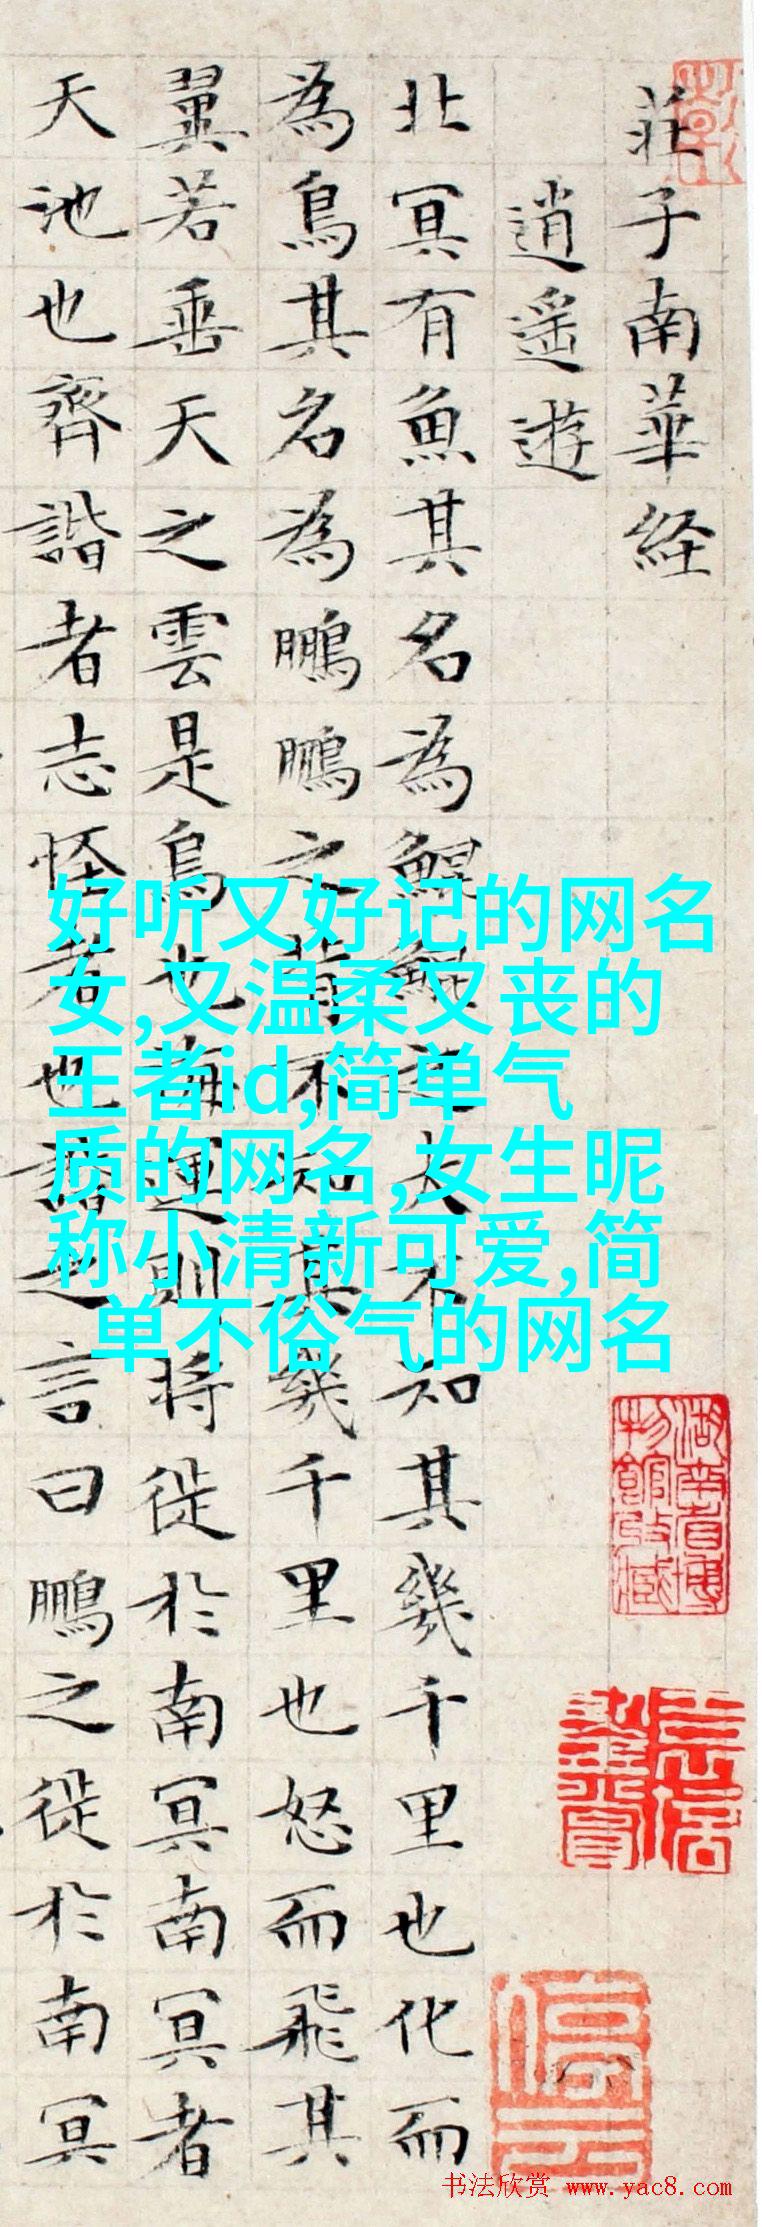 莊子南華経
逍遥遊
北冥有魚其名為鯤鯤之大不知其幾千里也化而
為鳥其名為鵬鵬之背不知其幾千里也怒而飛其
翼若垂天之雲是鳥也海運則將徙於南冥南冥者
天池也齊諧者志怪者也諧之言曰鵬之徙於南冥
好听又好记的网名
女,又温柔又丧的
王者id,简单气
质的网名,女生昵
称小清新可爱,简
单不俗气的网名
湖南省博
物館收藏
停云
书法欣赏 www.yac8.com